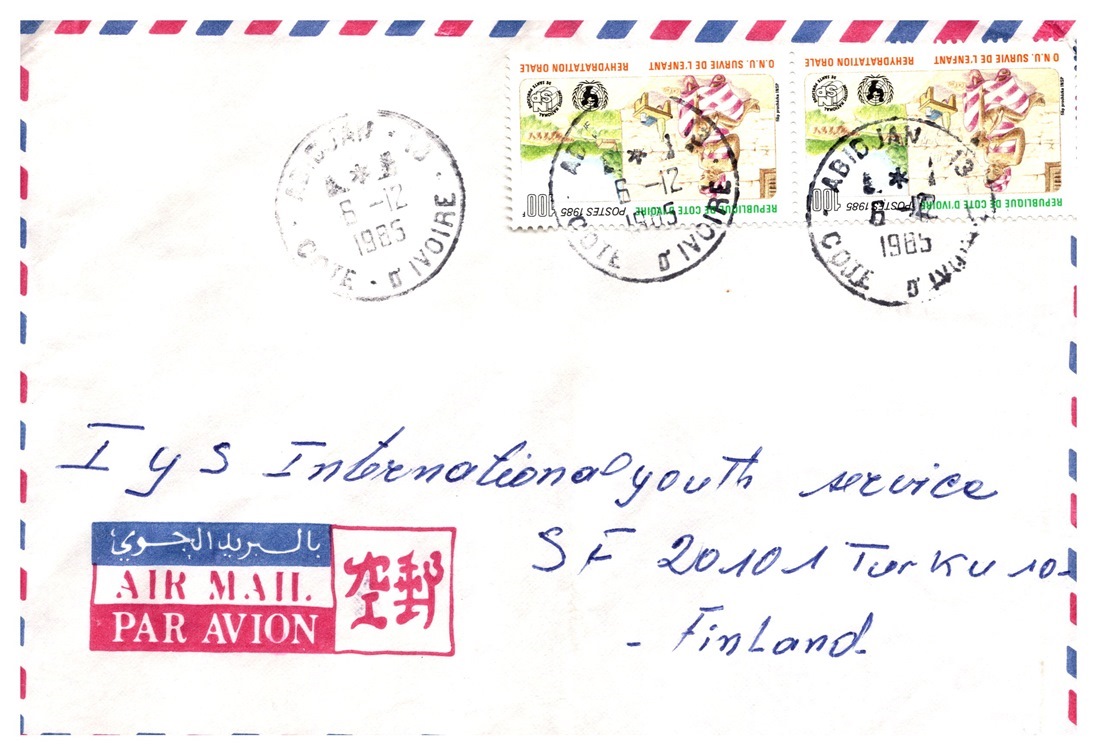 O.N.U. SURVIE DE L'ENFANT REHYDRATATION ORALE
100F POSTES 1985
REPUBLIQUE DE COTE D'IVOIRE
O.N.U. SURVIE DE L'ENFANT REHYDRATATION ORALE
100 POSTES 1985
REPUBLIQUE DE COTE D'IVOIRE
ABIDJAN · 13 ·
6 -12
1985
COTE · D'IVOIRE
6 -12
1985
COTE D'IVOIRE
ABIDJAN 13
6 -12
1985
COTE
I y S International youth service
SF 20101 Turku 10-
- Finland-
بالبريد الجوي
AIR MAIL
PAR AVION
空郵